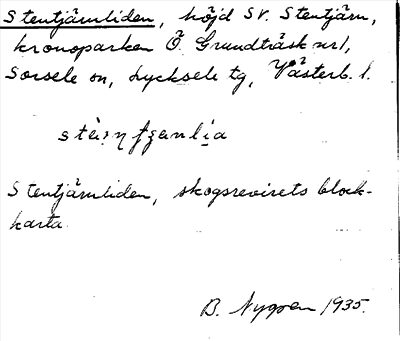 Stentjärnliden, höjd SV. Stentjärn,
kronoparken Ö. Grundträsk nr 1,
Sorsele sn, Lycksele tg, Västerb. l.
Stentjärnliden, skogsrevirets block-
karta.
B. Nygren 1935.